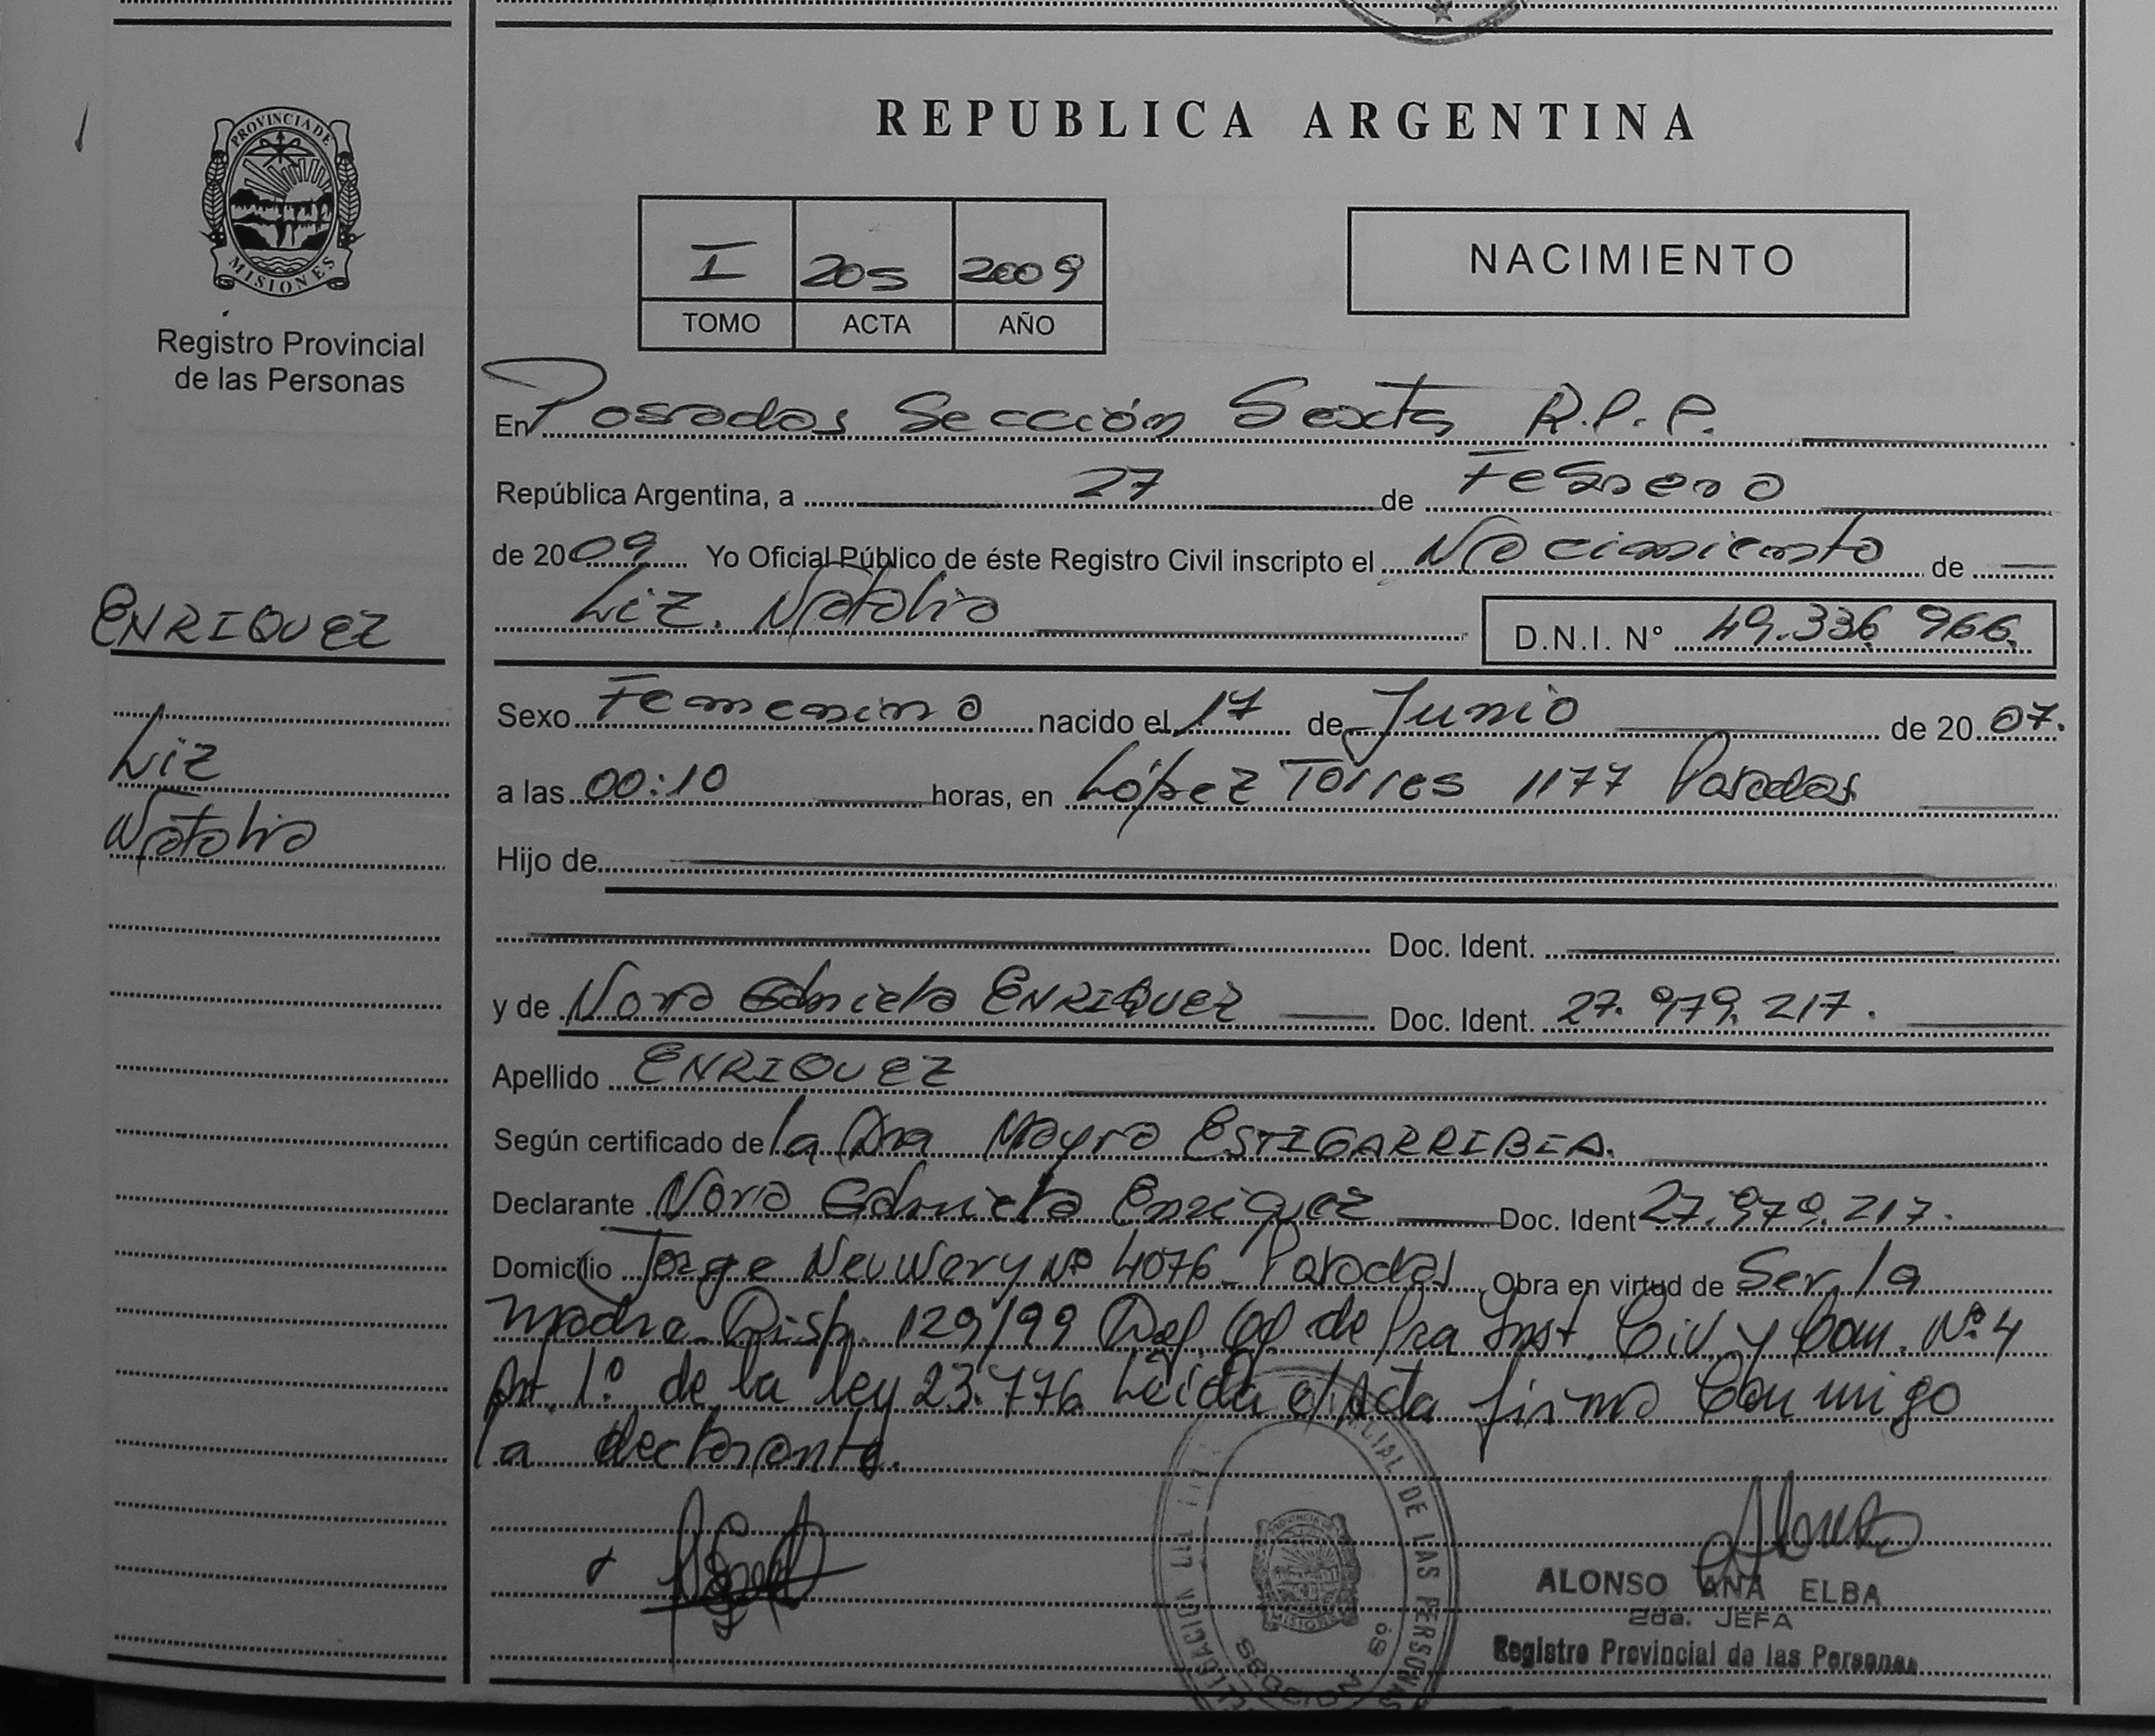 REPUBLICA ARGENTINA
PROVINCIA DE
MISIONES
Registro Provincial
de las Personas
I 205 2009
TOMO ACTA AÑO
NACIMIENTO
En Posadas Sección Sexta R.P.P.
República Argentina, a 27 de Febrero
de 2009 Yo Oficial Público de éste Registro Civil inscripto el Nacimiento de
Liz Natalia D.N.I. N° 49.336 966.
ENRIQUEZ
Liz
Natalia
Sexo Femenino nacido el 17 de Junio de 20 07.
a las 00:10 horas, en López Torres 1177 Posadas
Hijo de
Doc. Ident.
y de Nora Gabriela ENRIQUEZ Doc. Ident. 27.979.217.
Apellido ENRIQUEZ
Según certificado de la Dra Mayra ESTIGARRIBIA.
Declarante Nora Gabriela Enriquez Doc. Ident 27.979.217.
Domicilio Jorge Newbery Nº 4076 Posadas Obra en virtud de Ser la
madre Disp. 129/99 Def. Of. de 1ra Inst. Civ. y Com. Nº 4
Art. 1º de la ley 23.776 Leída el Acta firma Conmigo
la declarante.
ALONSO ANA ELBA
2da. JEFA
Registro Provincial de las Personas
DE LAS PERSONAS